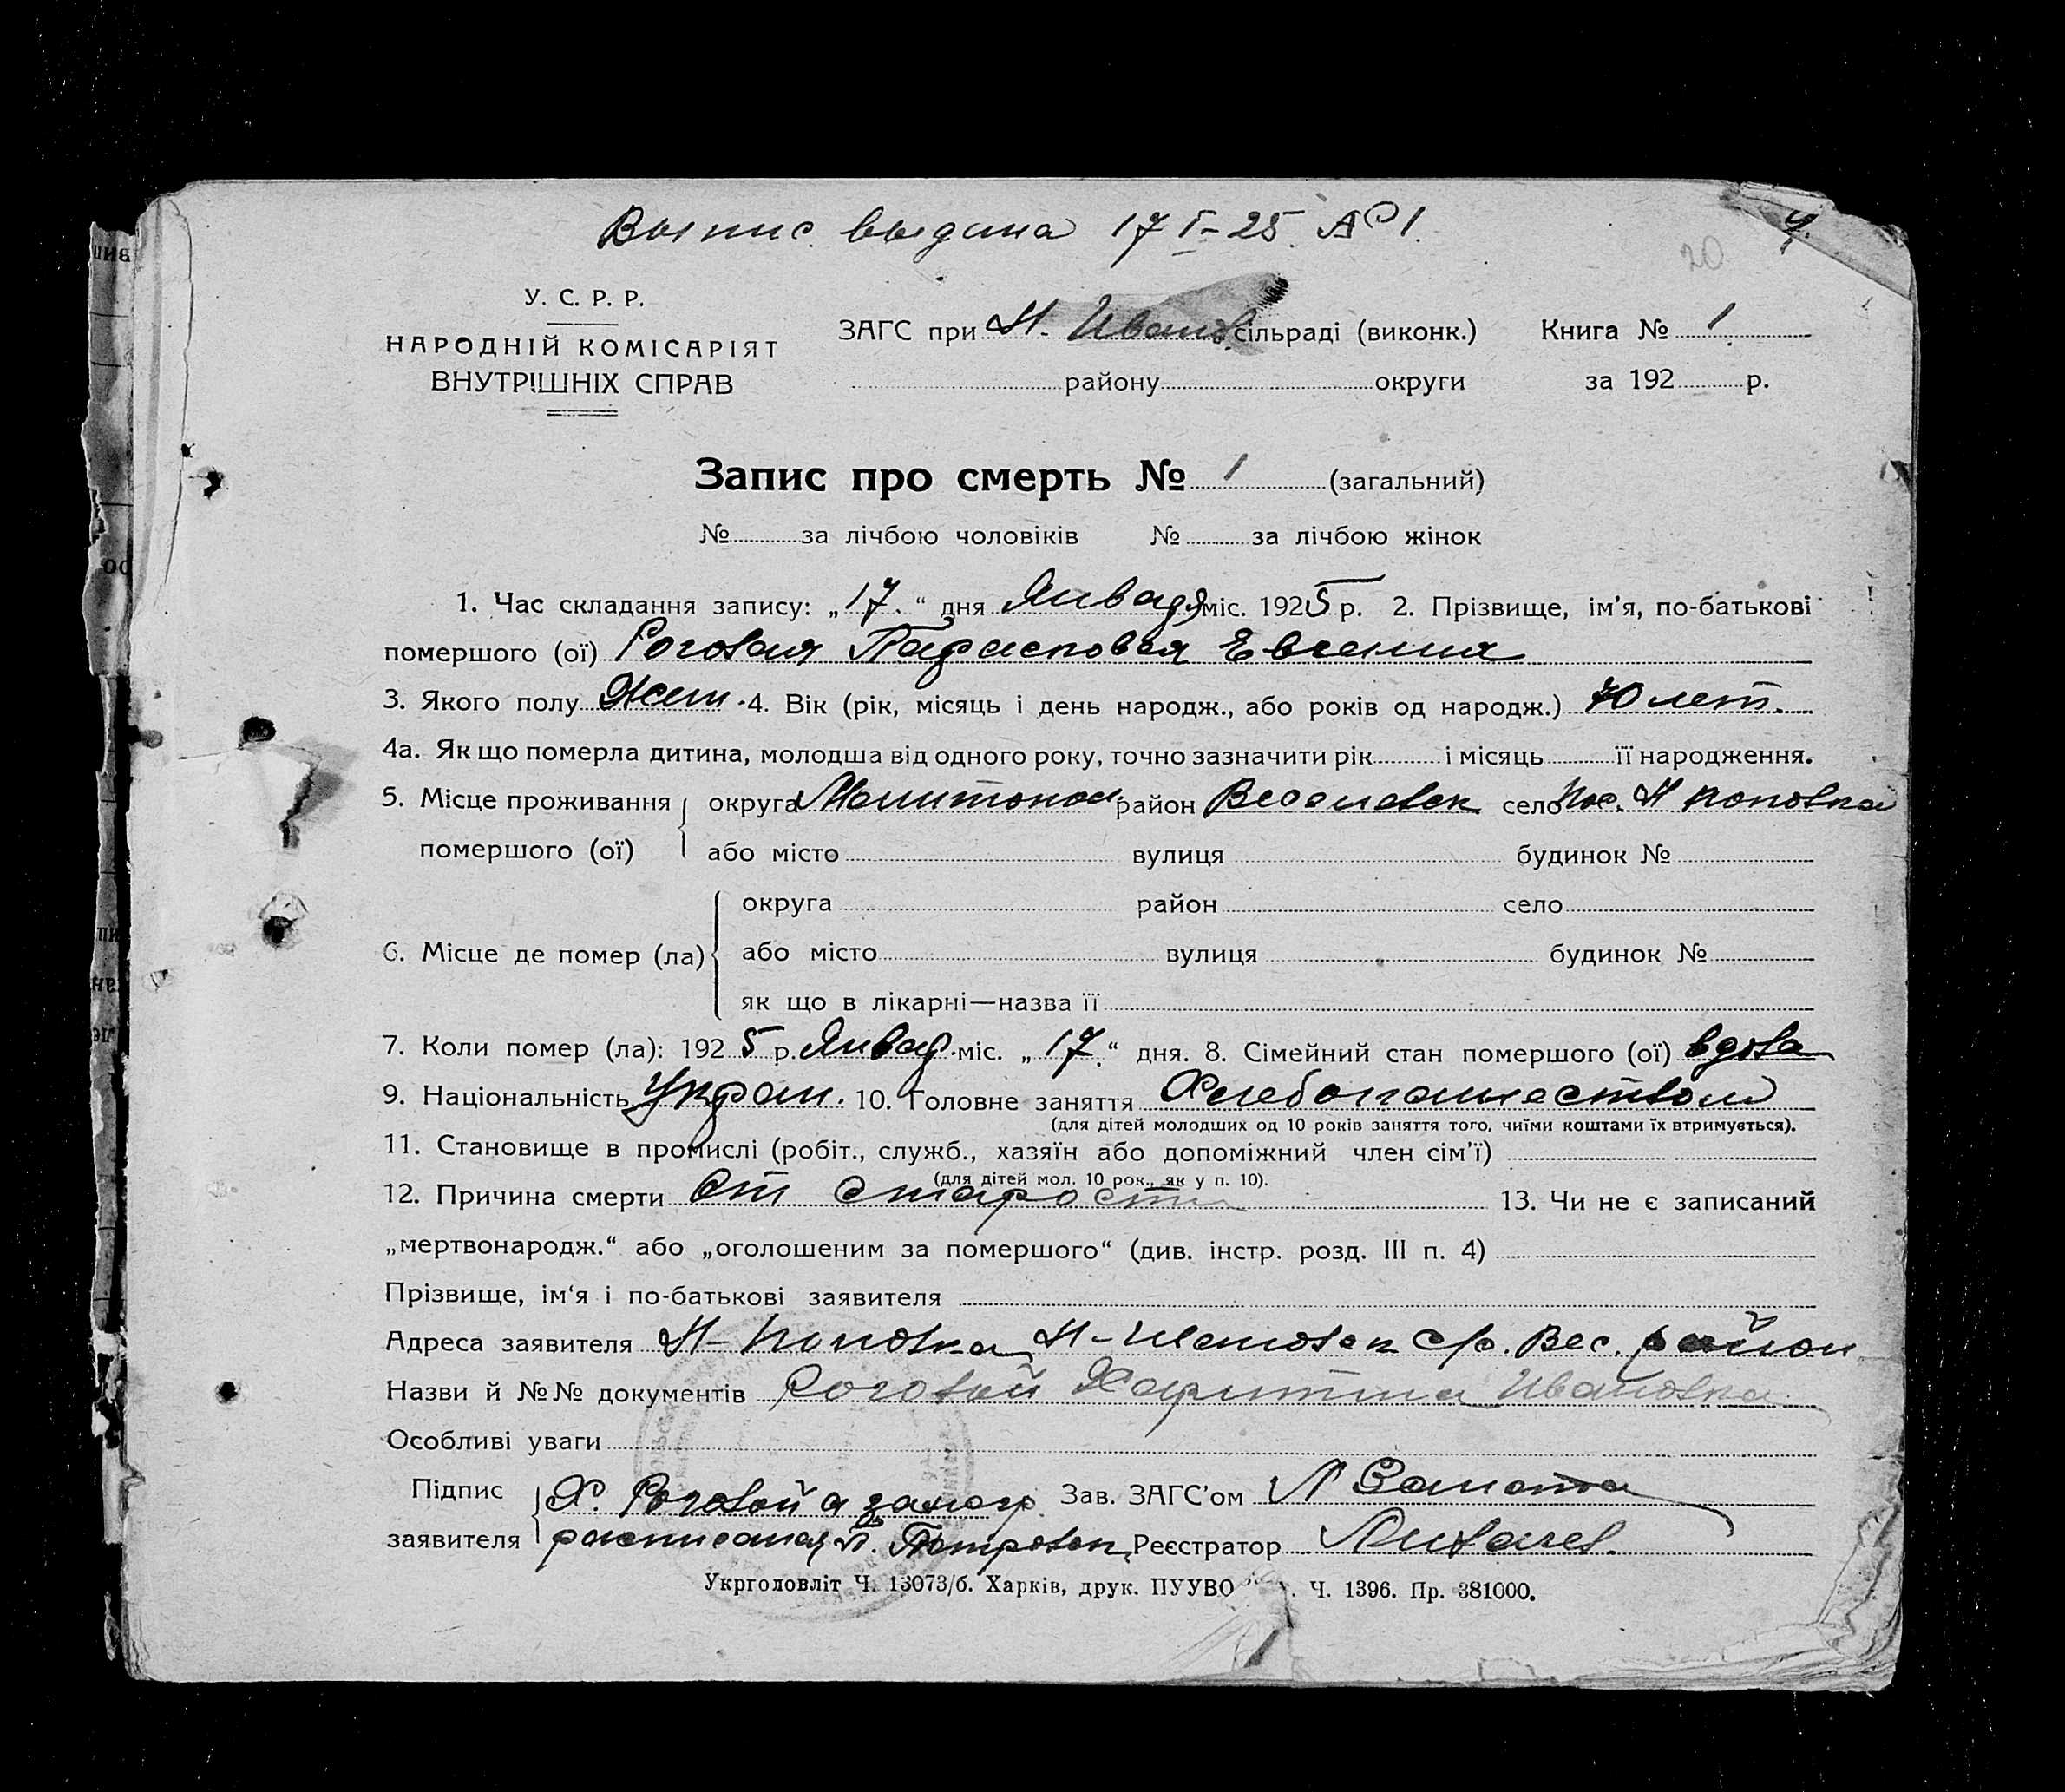 Выпис. выдана 17 I-25. № 1.
20
4.
У. С. Р. Р.
НАРОДНІЙ КОМІСАРІЯТ
ВНУТРІШНІХ СПРАВ
ЗАГС при Н- Иванов. сільраді (виконк.) Книга № 1
району округи за 192 р.
Запис про смерть № 1 (загальний)
№ за лічбою чоловіків № за лічбою жінок
1. Час складання запису: „17.“ дня Января міс. 1925 р. 2. Прізвище, ім'я, по-батькові
помершого (ої) Роговая Парасковья Евгения
3. Якого полу Жен. 4. Вік (рік, місяць і день народж., або років од народж.) 70 лет.
4а. Як що померла дитина, молодша від одного року, точно зазначити рік і місяць її народження.
5. Місце проживання округа Мелитопол район Веселовск село пос. Н Поповка
помершого (ої) або місто вулиця будинок №
округа район село
6. Місце де помер (ла) або місто вулиця будинок №
як що в лікарні—назва її
7. Коли помер (ла): 1925 р. Январ. міс. „17.“ дня. 8. Сімейний стан помершого (ої) вдова
9. Національність Украин. 10. Головне заняття Хлебопашеством
(для дітей молодших од 10 років заняття того, чиїми коштами їх втримується).
11. Становище в промислі (робіт., служб., хазяїн або допоміжний член сім'ї)
(для дітей мол. 10 рок., як у п. 10).
12. Причина смерти От старости 13. Чи не є записаний
„мертвонародж.“ або „оголошеним за помершого“ (див. інстр. розд. III п. 4)
Прізвище, ім'я і по-батькові заявителя
Адреса заявителя Н- Поповка, Н-Ивановск с/с. Вес. район
Назви й №№ документів Роговой Харитина Ивановна
Особливі уваги
Підпис Х. Роговой а за негр. Зав. ЗАГС'ом
заявителя расписался П. Петровск Реєстратор
Укрголовліт Ч. 13073/б. Харків, друк. ПУУВО Ч. 1396. Пр. 381000.